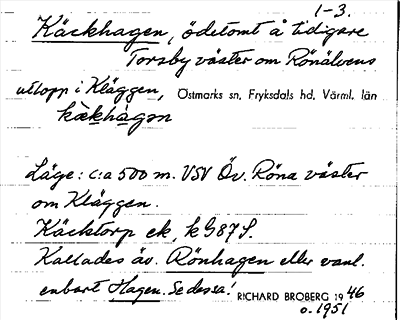 1-3.
Käckhagen, ödetomt å tidigare
Torsby väster om Rönälvens
utlopp i Kläggen, Östmarks sn, Fryksdals hd, Värml. län
kàkhàgən
Läge: c:a 500 m. VSV Öv. Röna väster
om Kläggen.
Käcktorp ek, k 987 S.
Kallades äv. Rönhagen eller vanl.
enbart Hagen. Se dessa! RICHARD BROBERG 1946
o. 1951